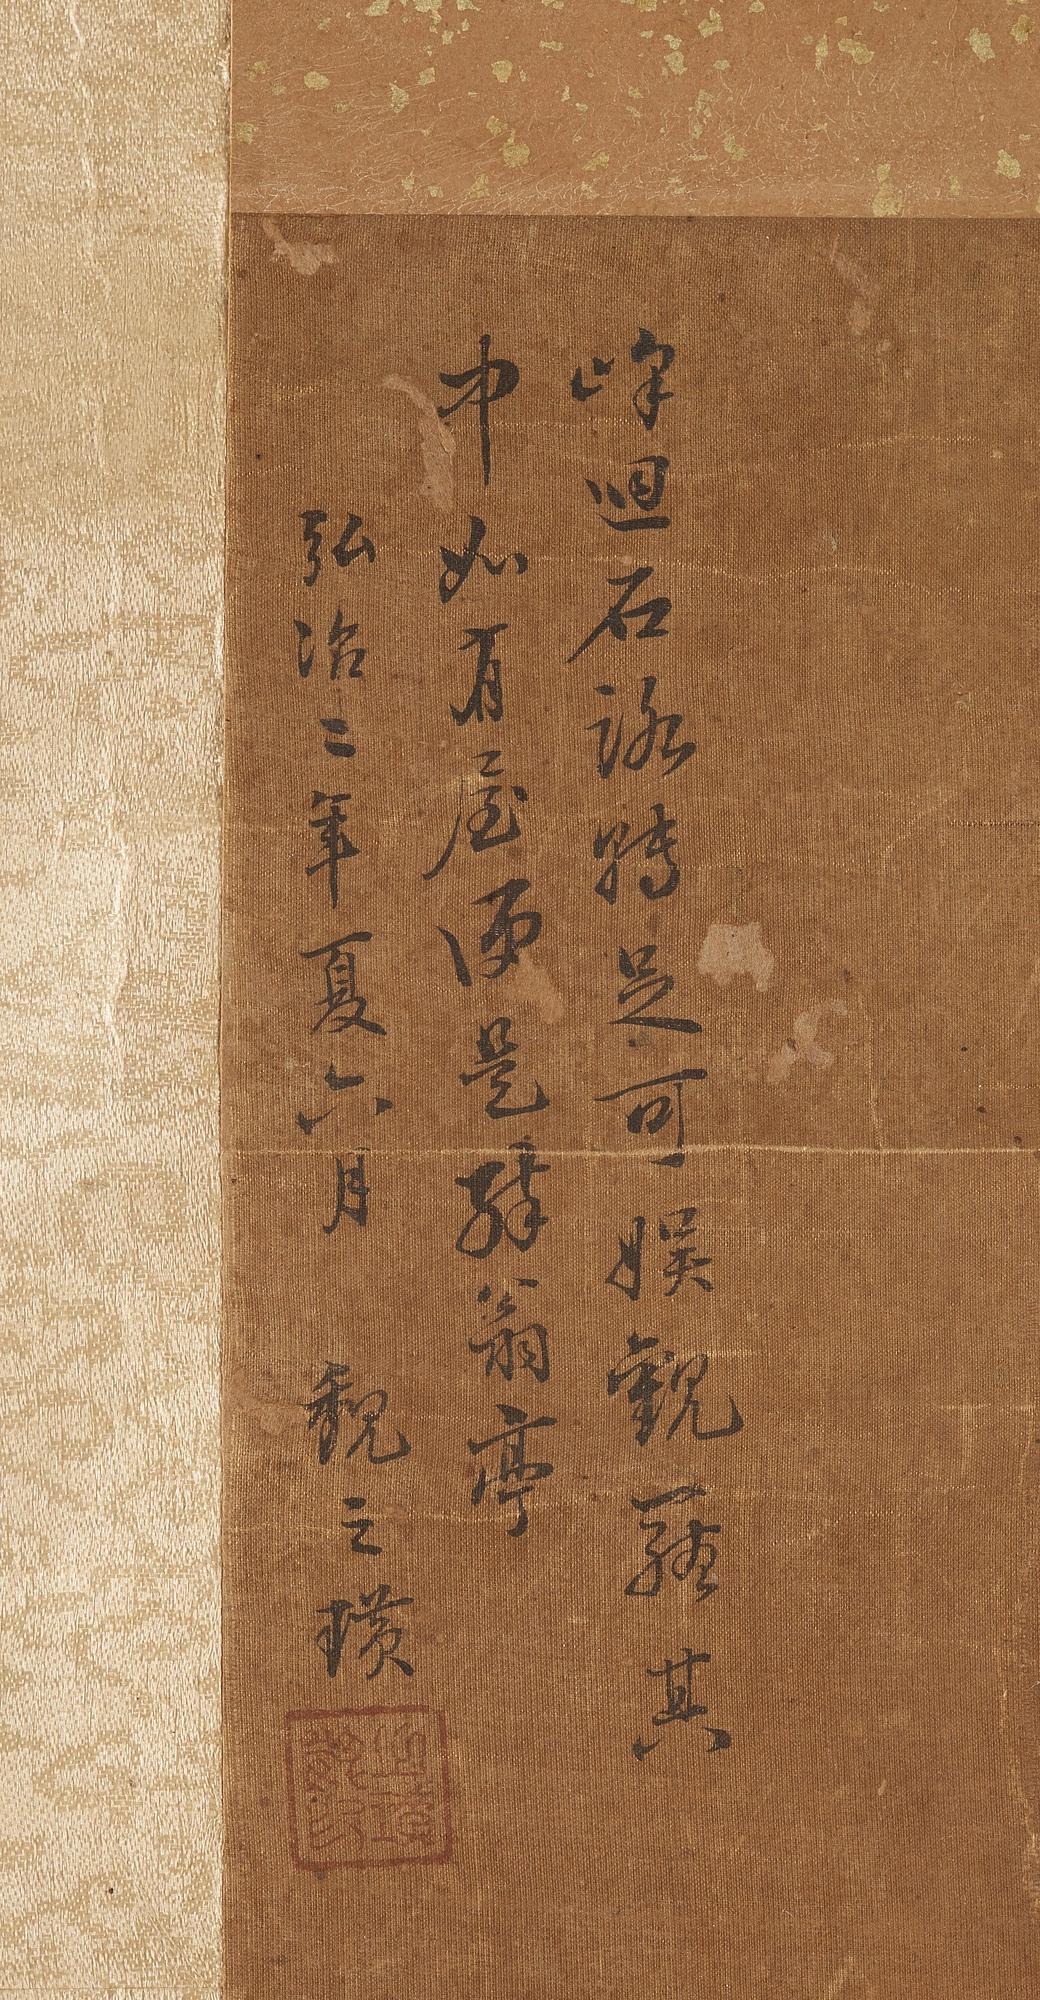 峰迴石詠轉足可娛觀羅其
中如有屋便是醉翁亭
弘治二年夏六月 觀之璜